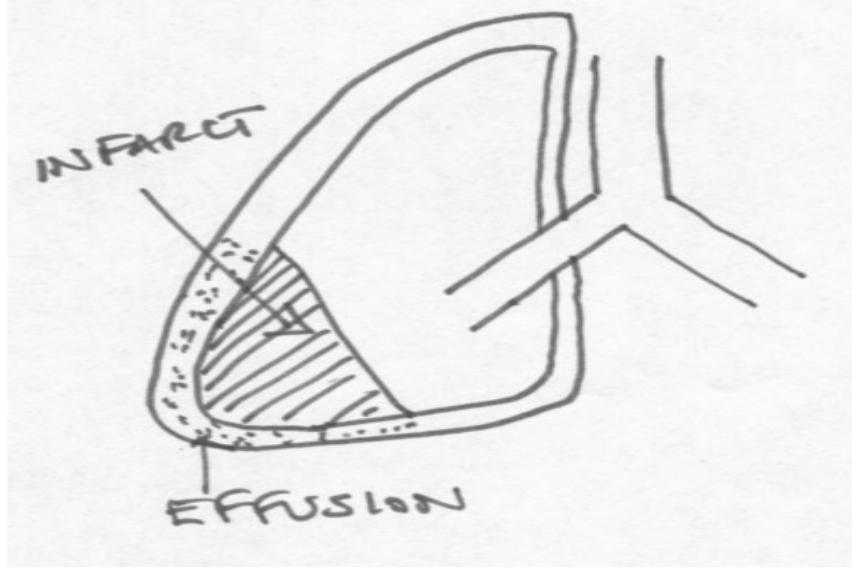 INFARCT
EFFUSION